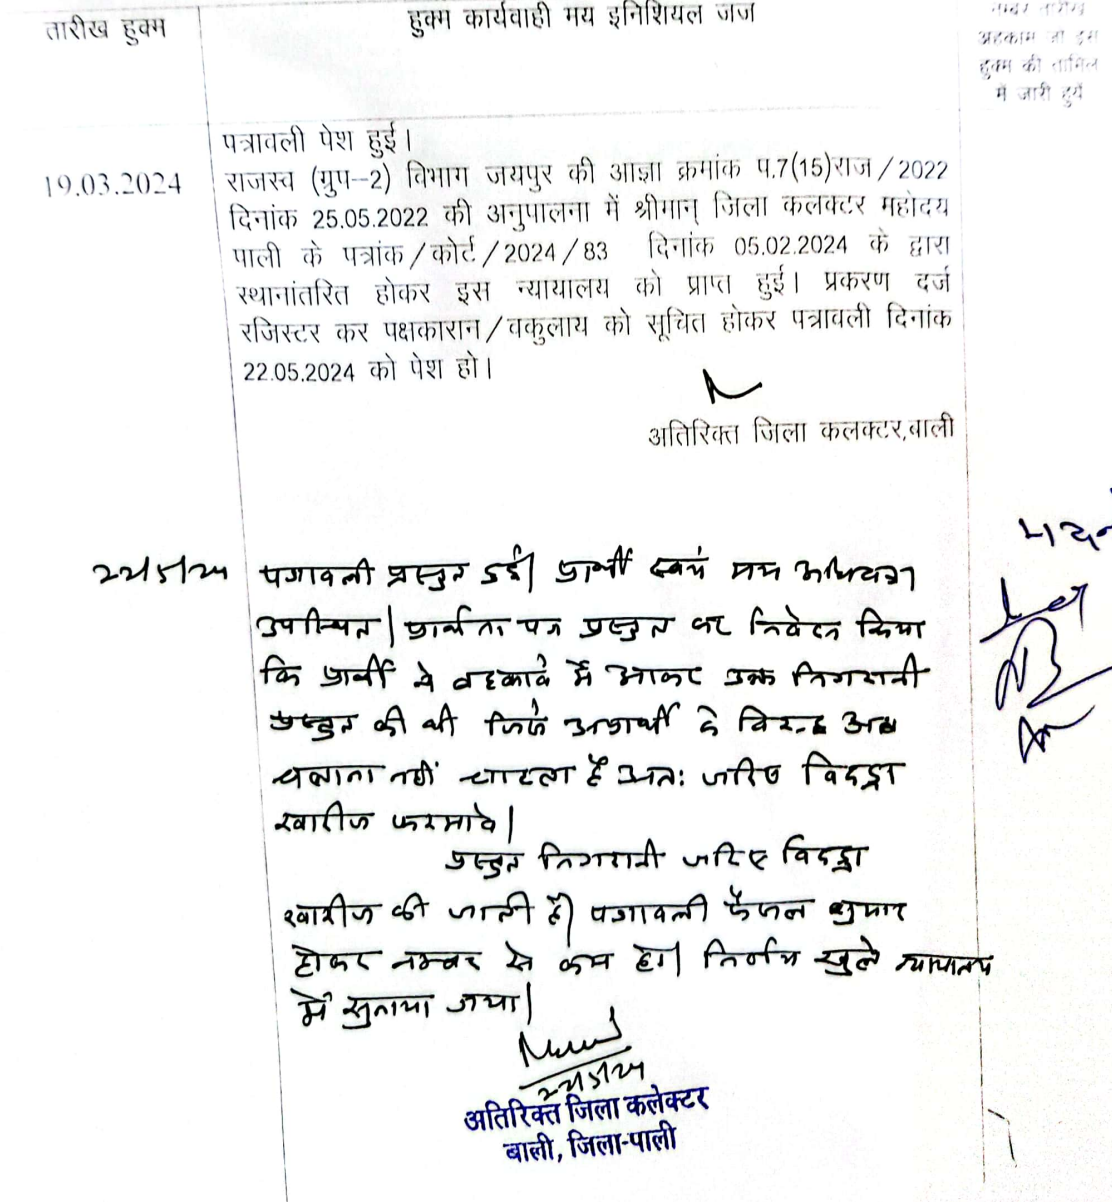 तारीख हुक्म
हुक्म कार्यवाही मय इनिशियल जज
अहकाम जो इस
हुक्म की तामिल
में जारी हुये
पत्रावली पेश हुई।
19.03.2024
राजस्व (ग्रुप--2) विभाग जयपुर की आज्ञा क्रमांक प.7(15)राज/2022
दिनांक 25.05.2022 की अनुपालना में श्रीमान् जिला कलक्टर महोदय
पाली के पत्रांक/कोर्ट/2024/83 दिनांक 05.02.2024 के द्वारा
स्थानांतरित होकर इस न्यायालय को प्राप्त हुई। प्रकरण दर्ज
रजिस्टर कर पक्षकारान/वकुलाय को सूचित होकर पत्रावली दिनांक
22.05.2024 को पेश हो।
अतिरिक्त जिला कलक्टर,बाली
२२/5/२४
पत्रावली प्रस्तुत हुई। प्रार्थी स्वयं मय अधिवक्ता
उपस्थित। प्रार्थना पत्र प्रस्तुत कर निवेदन किया
कि प्रार्थी ने बहकावे में आकर उक्त निगरानी
प्रस्तुत की थी जिसे अप्रार्थी के विरुद्ध अब
चलाना नहीं चाहता है अतः जरिए विदड्रा
खारीज फरमावे।
प्रस्तुत निगरानी जरिए विदड्रा
खारीज की जाती है। पत्रावली फैसल शुमार
होकर नम्बर से कम हो। निर्णय खुले न्यायालय
में सुनाया गया।
२२/5/२४
अतिरिक्त जिला कलेक्टर
बाली, जिला-पाली